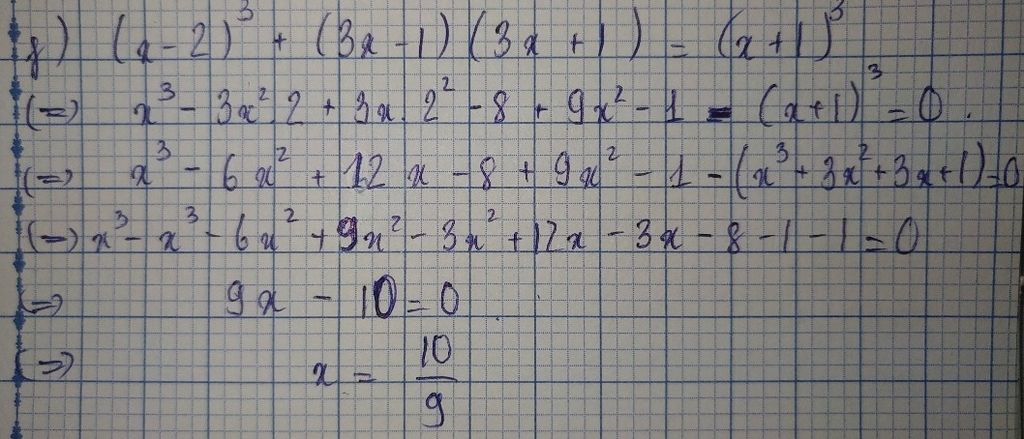 f) (x-2)³ + (3x-1)(3x+1) = (x+1)³
(=) x³ - 3x².2 + 3x.2² - 8 + 9x² - 1 - (x+1)³ = 0.
(=) x³ - 6x² + 12x - 8 + 9x² - 1 - (x³ + 3x² + 3x + 1) = 0
(=) x³ - x³ - 6x² + 9x² - 3x² + 12x - 3x - 8 - 1 - 1 = 0
(=) 9x - 10 = 0
(=) x = 10/9